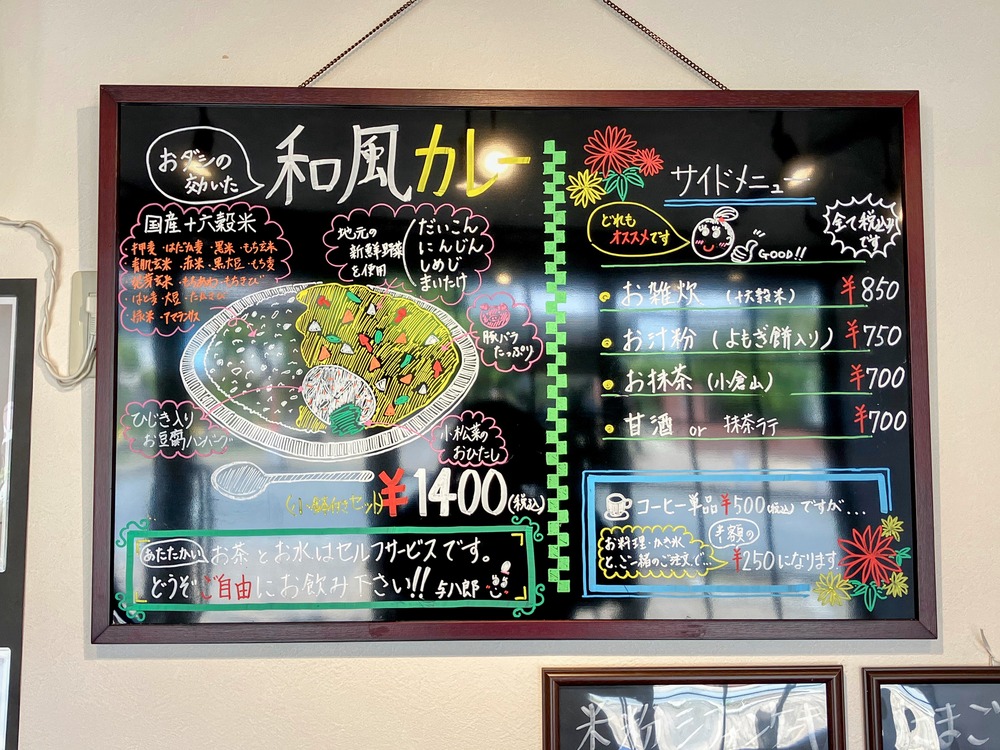 おダシの
効いた
和風カレー
国産十六穀米
押麦・はだか麦・黒米・もち玄米
青肌玄米・赤米・黒大豆・もち麦
発芽玄米・もちあわ・もちきび
はと麦・大豆・たかきび
緑米・アマランサス
地元の
新鮮野菜
を使用
だいこん
にんじん
しめじ
まいたけ
豚バラ
たっぷり
ひじき入り
お豆腐ハンバーグ
小松菜の
おひたし
(小鉢付きセット)¥1400(税込)
あたたかいお茶とお水はセルフサービスです。
どうぞご自由にお飲み下さい!! 与八郎
サイドメニュー
どれも
オススメです
GOOD!!
全て税込み
です
お雑炊 (十六穀米) ¥850
お汁粉 (よもぎ餅入り) ¥750
お抹茶 (小倉山) ¥700
甘酒 or 抹茶ラテ ¥700
コーヒー単品¥500(税込)ですが...
お料理・かき氷
と、ご一緒のご注文で...
半額の
¥250になります。
米粉シフォンケーキ